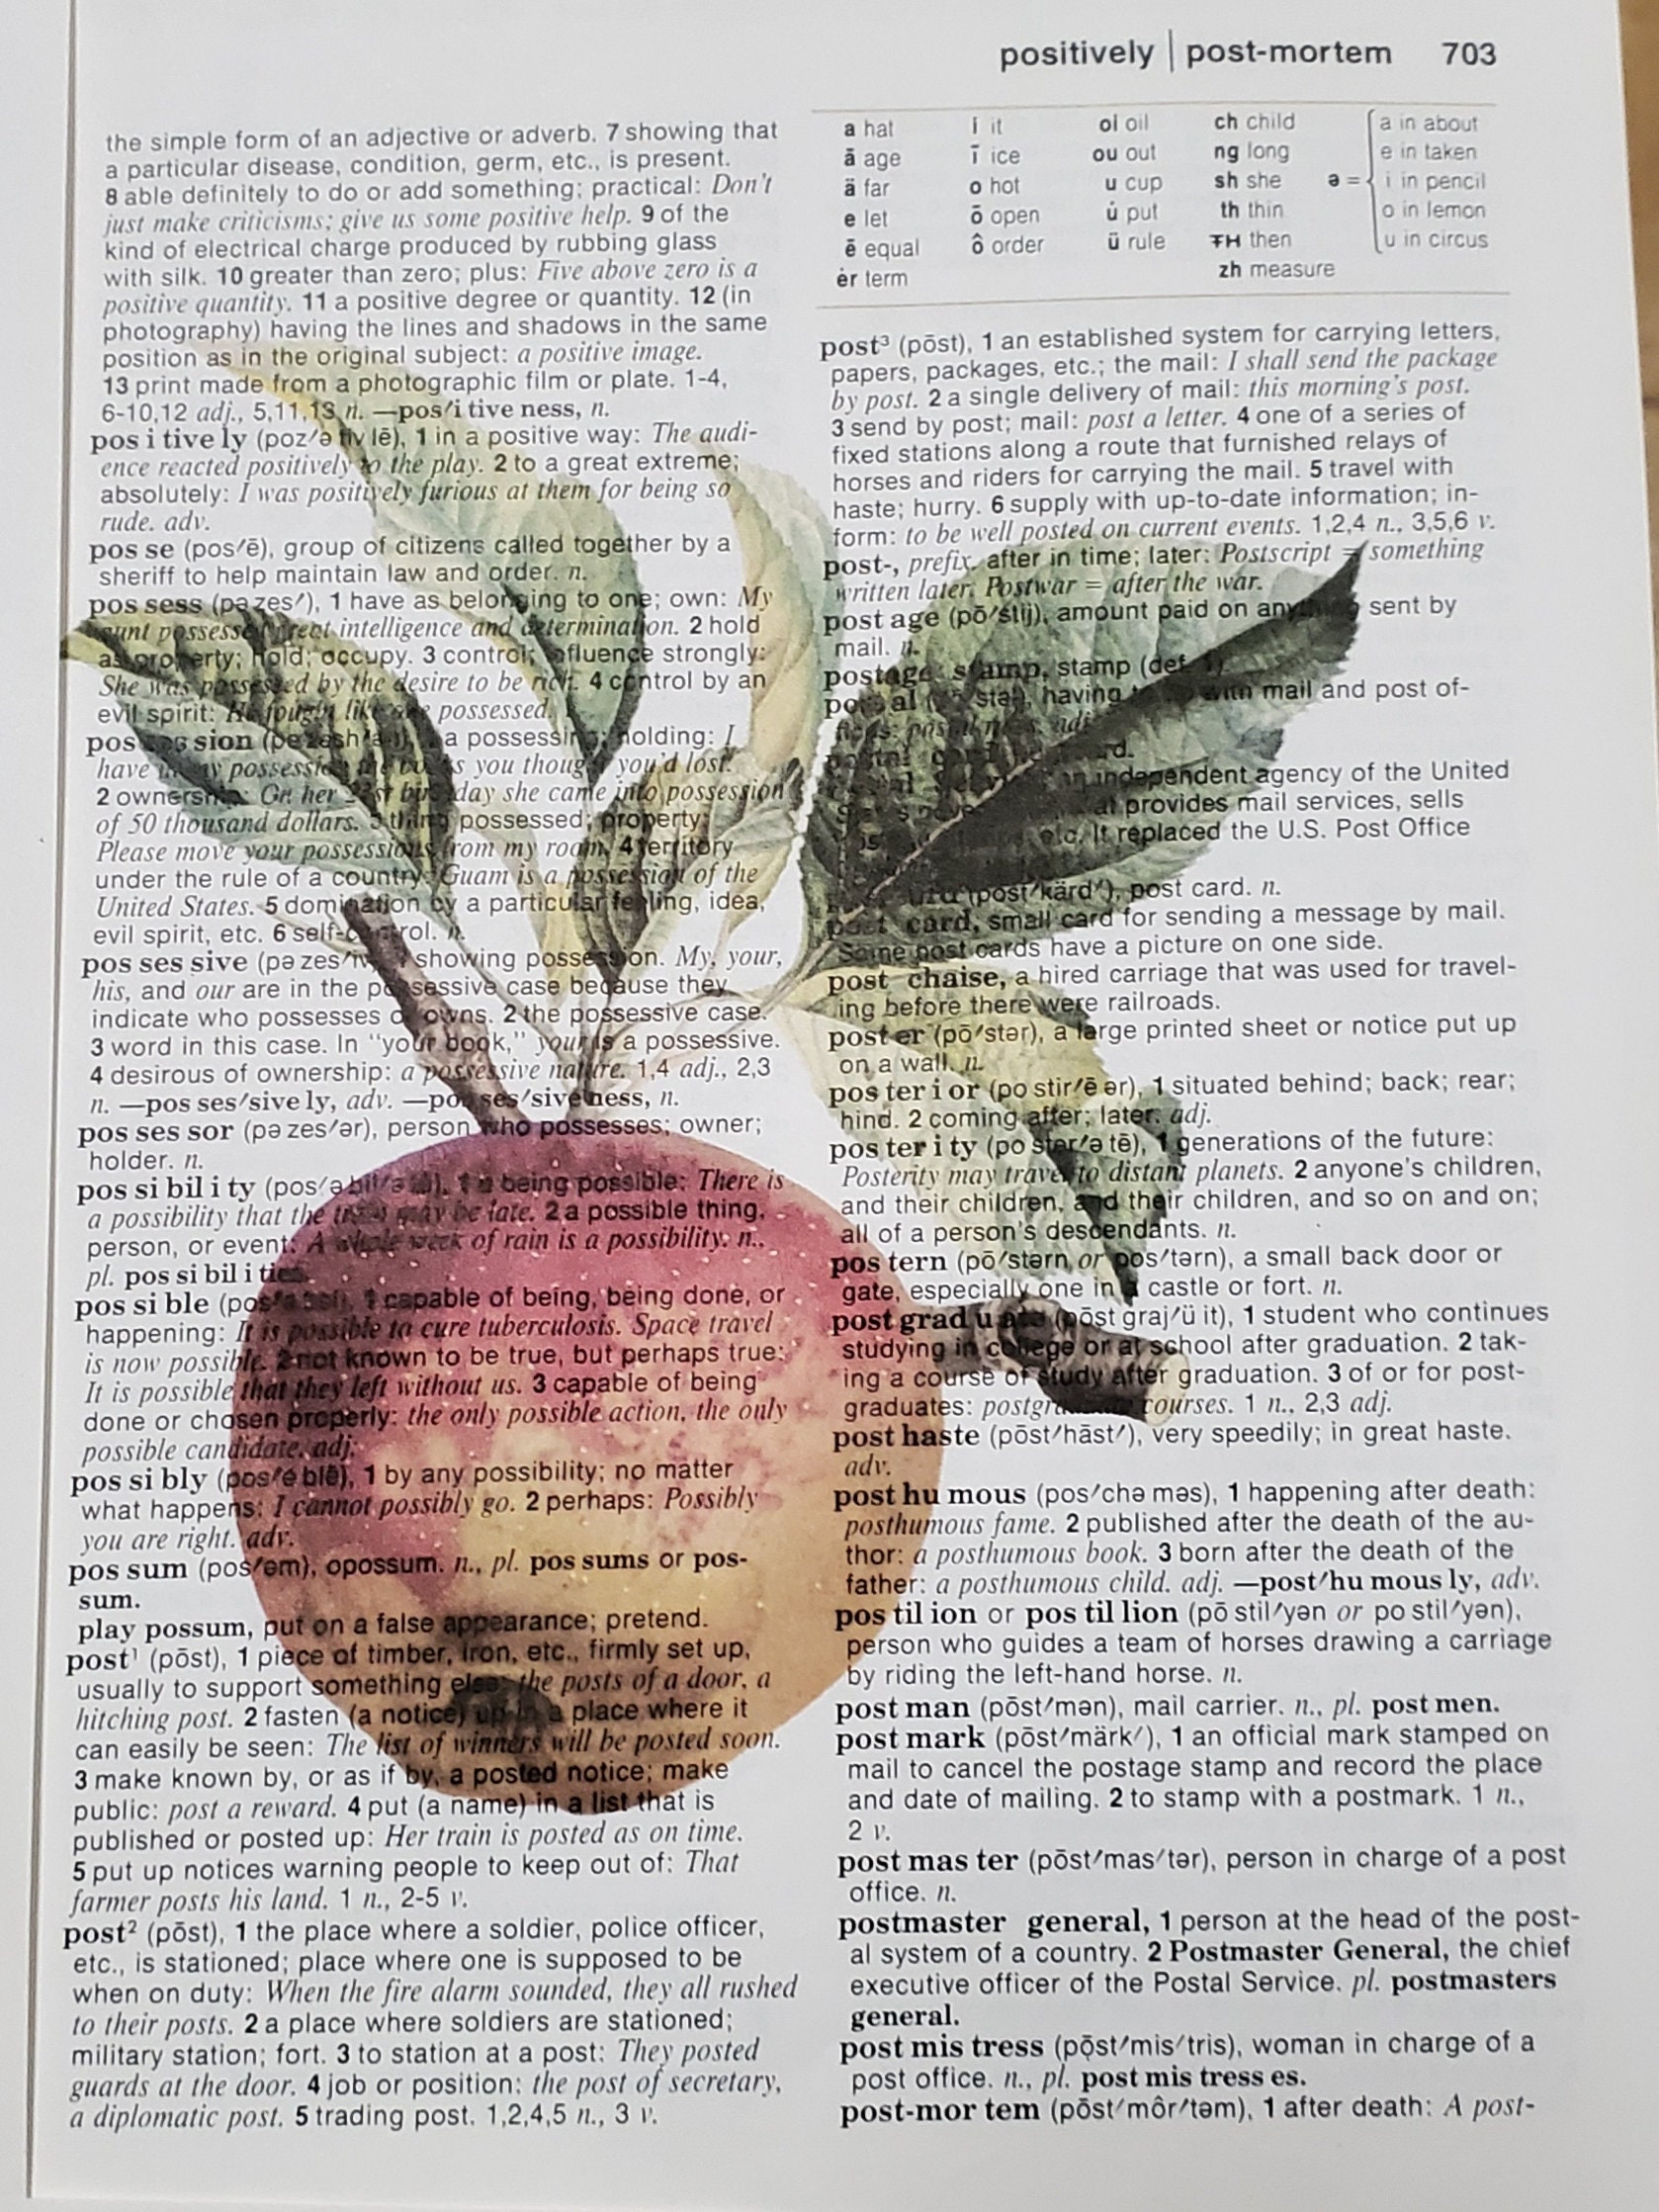 positively | post-mortem 703
the simple form of an adjective or adverb. 7 showing that
a particular disease, condition, germ, etc., is present.
8 able definitely to do or add something; practical: Don't
just make criticisms; give us some positive help. 9 of the
kind of electrical charge produced by rubbing glass
with silk. 10 greater than zero; plus: Five above zero is a
positive quantity. 11 a positive degree or quantity. 12 (in
photography) having the lines and shadows in the same
position as in the original subject: a positive image.
13 print made from a photographic film or plate. 1-4,
6-10,12 adj., 5,11,13 n. —pos′i tive ness, n.
pos i tive ly (poz′ə tiv lē), 1 in a positive way: The audi-
ence reacted positively to the play. 2 to a great extreme;
absolutely: I was positively furious at them for being so
rude. adv.
pos se (pos′ē), group of citizens called together by a
sheriff to help maintain law and order. n.
pos sess (pə zes′), 1 have as belonging to one; own: My
aunt possessed great intelligence and determination. 2 hold
as property; hold; occupy. 3 control; influence strongly:
She was possessed by the desire to be rich. 4 control by an
evil spirit: He fought like one possessed.
pos ses sion (pə zesh′ən), a possessing; holding: I
have in my possession the books you thought you'd lost.
2 ownership: On her 21st birthday she came into possession
of 50 thousand dollars. 3 thing possessed; property:
Please move your possessions from my room. 4 territory
under the rule of a country: Guam is a possession of the
United States. 5 domination by a particular feeling, idea,
evil spirit, etc. 6 self-control. n.
pos ses sive (pə zes′iv), 1 showing possession. My, your,
his, and our are in the possessive case because they
indicate who possesses or owns. 2 the possessive case.
3 word in this case. In “your book,” your is a possessive.
4 desirous of ownership: a possessive nature. 1,4 adj., 2,3
n. —pos ses′sive ly, adv. —pos ses′sive ness, n.
pos ses sor (pə zes′ər), person who possesses; owner;
holder. n.
pos si bil i ty (pos′ə bil′ə tē), 1 a being possible: There is
a possibility that the train may be late. 2 a possible thing,
person, or event: A whole week of rain is a possibility. n.,
pl. pos si bil i ties.
pos si ble (pos′ə bəl), 1 capable of being, being done, or
happening: It is possible to cure tuberculosis. Space travel
is now possible. 2 not known to be true, but perhaps true:
It is possible that they left without us. 3 capable of being
done or chosen properly: the only possible action, the only
possible candidate. adj.
pos si bly (pos′ə blē), 1 by any possibility; no matter
what happens: I cannot possibly go. 2 perhaps: Possibly
you are right. adv.
pos sum (pos′əm), opossum. n., pl. pos sums or pos-
sum.
play possum, put on a false appearance; pretend.
post¹ (pōst), 1 piece of timber, iron, etc., firmly set up,
usually to support something else: the posts of a door, a
hitching post. 2 fasten (a notice) up in a place where it
can easily be seen: The list of winners will be posted soon.
3 make known by, or as if by, a posted notice; make
public: post a reward. 4 put (a name) in a list that is
published or posted up: Her train is posted as on time.
5 put up notices warning people to keep out of: That
farmer posts his land. 1 n., 2-5 v.
post² (pōst), 1 the place where a soldier, police officer,
etc., is stationed; place where one is supposed to be
when on duty: When the fire alarm sounded, they all rushed
to their posts. 2 a place where soldiers are stationed;
military station; fort. 3 to station at a post: They posted
guards at the door. 4 job or position: the post of secretary,
a diplomatic post. 5 trading post. 1,2,4,5 n., 3 v.
a hat i it oi oil ch child a in about
ā age ī ice ou out ng long e in taken
ä far o hot u cup sh she ə = i in pencil
e let ō open u̇ put th thin o in lemon
ē equal ô order ü rule ŦH then u in circus
ėr term zh measure
post³ (pōst), 1 an established system for carrying letters,
papers, packages, etc.; the mail: I shall send the package
by post. 2 a single delivery of mail: this morning's post.
3 send by post; mail: post a letter. 4 one of a series of
fixed stations along a route that furnished relays of
horses and riders for carrying the mail. 5 travel with
haste; hurry. 6 supply with up-to-date information; in-
form: to be well posted on current events. 1,2,4 n., 3,5,6 v.
post-, prefix. after in time; later: Postscript = something
written later. Postwar = after the war.
post age (pō′stij), amount paid on anything sent by
mail. n.
postage stamp, stamp (def. 1).
post al (pō′stəl), having to do with mail and post of-
fices: postal rates. adj.
postal card.
an independent agency of the United
provides mail services, sells
etc. It replaced the U.S. Post Office
(pōst′kärd′), post card. n.
post card, small card for sending a message by mail.
Some post cards have a picture on one side.
post chaise, a hired carriage that was used for travel-
ing before there were railroads.
post er (pō′stər), a large printed sheet or notice put up
on a wall. n.
pos ter i or (po stir′ē ər), 1 situated behind; back; rear;
hind. 2 coming after; later. adj.
pos ter i ty (po ster′ə tē), 1 generations of the future:
Posterity may travel to distant planets. 2 anyone's children,
and their children, and their children, and so on and on;
all of a person's descendants. n.
pos tern (pō′stərn or pos′tərn), a small back door or
gate, especially one in a castle or fort. n.
post grad u ate (pōst graj′ü it), 1 student who continues
studying in college or at school after graduation. 2 tak-
ing a course of study after graduation. 3 of or for post-
graduates: postgraduate courses. 1 n., 2,3 adj.
post haste (pōst′hāst′), very speedily; in great haste.
adv.
post hu mous (pos′chə məs), 1 happening after death:
posthumous fame. 2 published after the death of the au-
thor: a posthumous book. 3 born after the death of the
father: a posthumous child. adj. —post′hu mous ly, adv.
pos til ion or pos til lion (pō stil′yən or po stil′yən),
person who guides a team of horses drawing a carriage
by riding the left-hand horse. n.
post man (pōst′mən), mail carrier. n., pl. post men.
post mark (pōst′märk′), 1 an official mark stamped on
mail to cancel the postage stamp and record the place
and date of mailing. 2 to stamp with a postmark. 1 n.,
2 v.
post mas ter (pōst′mas′tər), person in charge of a post
office. n.
postmaster general, 1 person at the head of the post-
al system of a country. 2 Postmaster General, the chief
executive officer of the Postal Service. pl. postmasters
general.
post mis tress (pōst′mis′tris), woman in charge of a
post office. n., pl. post mis tress es.
post-mor tem (pōst′môr′təm), 1 after death: A post-